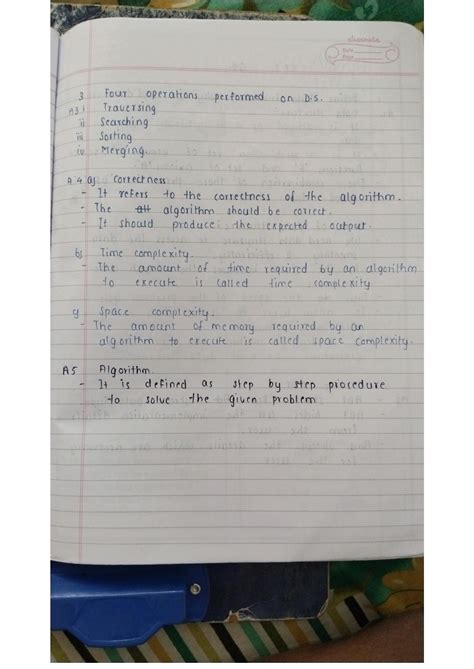 classmate
Date
Page
3 Four operations performed on D.S.
A3 i Traversing
ii Searching
iii Sorting
iv Merging
A4 a) Correctness
- It refers to the correctness of the algorithm.
- The algorithm should be correct.
- It should produce the expected output.
b) Time complexity.
- The amount of time required by an algorithm
to execute is called time complexity
c) Space complexity.
- The amount of memory required by an
algorithm to execute is called space complexity.
A5 Algorithm
- It is defined as step by step procedure
to solve the given problem